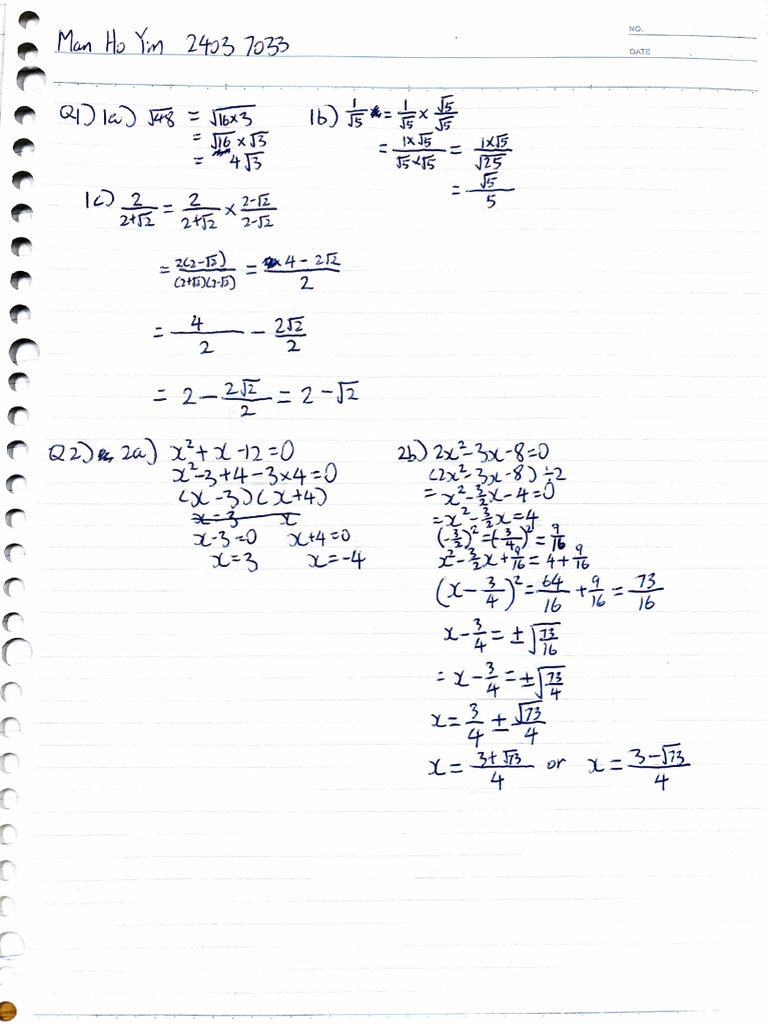 Man Ho Yim 2403 7033
NO.
DATE
Q1) 1a) √48 = √16×3
= √16 × √3
= 4√3
1b) 1/√5 = 1/√5 × √5/√5
= 1×√5/√5×√5 = 1×√5/√25
= √5/5
1c) 2/2+√2 = 2/2+√2 × 2-√2/2-√2
= 2(2-√2)/(2+√2)(2-√2) = 4-2√2/2
= 4/2 - 2√2/2
= 2 - 2√2/2 = 2-√2
Q2) 2a) x²+x-12=0
x²-3+4-3×4=0
(x-3)(x+4)
x=3 x
x-3=0 x+4=0
x=3 x=-4
2b) 2x²-3x-8=0
(2x²-3x-8)÷2
= x²-3/2x-4=0
= x²-3/2x=4
(-3/2)²=(-3/4)²=9/16
x²-3/2x+9/16=4+9/16
(x-3/4)²=64/16+9/16=73/16
x-3/4=±√73/16
= x-3/4=±√73/4
x=3/4±√73/4
x=3+√73/4 or x=3-√73/4